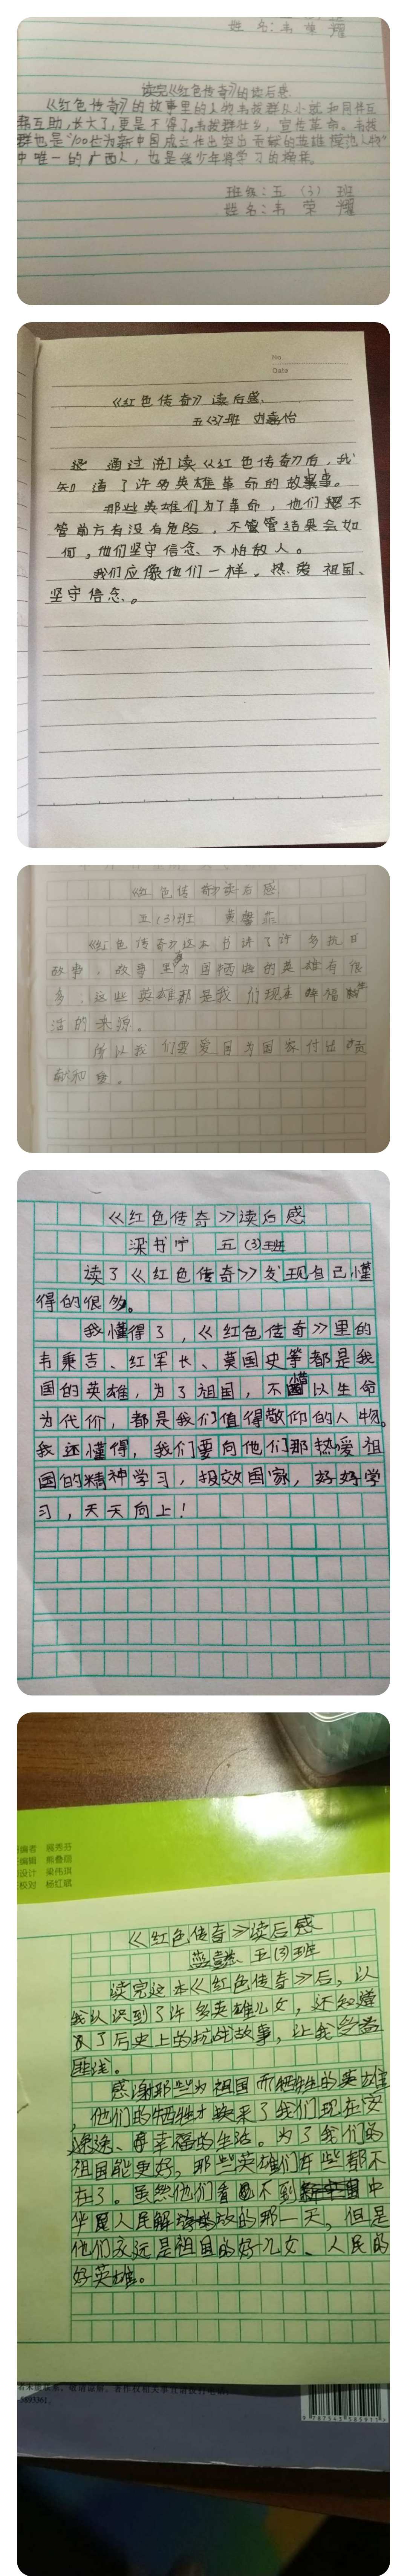 姓 名：韦 荣 耀
读完《红色传奇》的读后感
《红色传奇》的故事里的人物韦拔群从小就和同伴互
帮互助，长大了，更是不得了。韦拔群壮乡，宣传革命。韦拔
群也是“100位为新中国成立作出突出贡献的英雄模范人物”
中唯一的广西人，也是我少年将学习的榜样。
班级：五 （3） 班
姓 名：韦 荣 耀
No
Date
《红色传奇》读后感
五（3）班 刘嘉怡
通过阅读《红色传奇》后，我
知道了许多英雄革命的故事。
那些英雄们为了革命，他们不
管前方有没有危险，不管结果会如
何，他们坚守信念、不怕敌人。
我们应像他们一样。热爱祖国、
坚守信念。
《红色传奇》读后感
五（3）班 黄馨菲
《红色传奇》这本书讲了许多抗日
故事，故事里为国牺牲的英雄有很
多，这些英雄都是我们现在幸福生
活的来源。
所以我们要爱国为国家付出贡
献和
《红色传奇》读后感
梁书宁 五（3）班
读了《红色传奇》发现自己懂
得的很多。
我懂得了，《红色传奇》里的
韦秉吉、红军长、莫国史等都是我
国的英雄，为了祖国，不惜以生命
为代价，都是我们值得敬仰的人物。
我还懂得，我们要向他们那热爱祖
国的精神学习，报效国家，好好学
习，天天向上！
编者 聂秀芬
编辑 熊叠丽
设计 梁伟琪
校对 杨红斌
《红色传奇》读后感
五（3）班
读完这本《红色传奇》后，以
我认识到了许多英雄儿女，还知道
了历史上的抗战故事，让我受益
匪浅。
感谢那些为祖国而牺牲的英雄
，他们的牺牲才换来了我们现在安
逸、幸福的生活。为了我们的
祖国能更好，那些英雄们有些都不
在了。虽然他们看不到中
华人民解放的那一天，但是
他们永远是祖国的好儿女、人民的
好英雄。